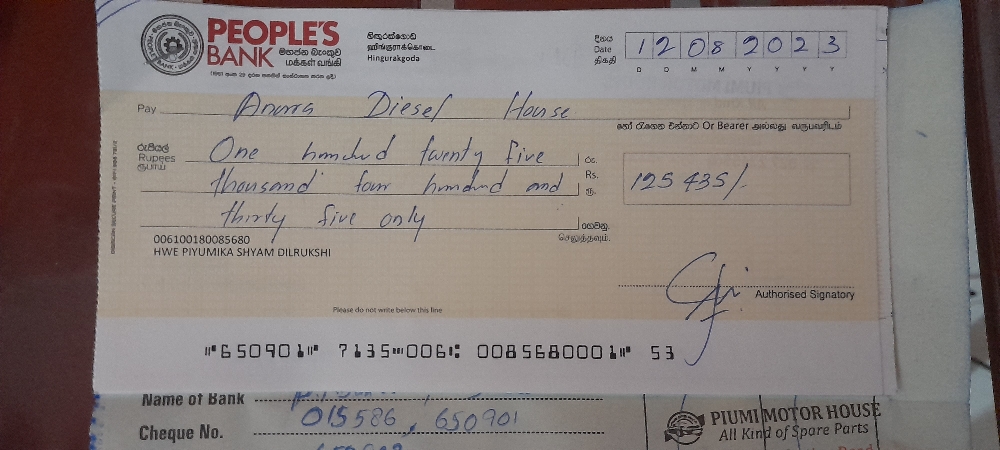 PEOPLE'S
BANK මහජන බැංකුව
மக்கள் வங்கி
හිඟුරක්ගොඩ
ஹிங்குராக்கொடை
Hingurakgoda
දිනය
Date
திகதி
12 08 2023
D D M M Y Y Y Y
Pay Anura Diesel House
හෝ රැගෙන එන්නාට Or Bearer அல்லது வருபவரிடம்
රුපියල්
Rupees
ரூபாய்
One hundred twenty five
thousand four hundred and
thirty five only
රු.
Rs.
ரூ.
125 435/-
ගෙවනු.
செலுத்தவும்.
006100180085680
HWE PIYUMIKA SHYAM DILRUKSHI
Authorised Signatory
Please do not write below this line
⑈650901⑈ 7135⑉006⑆ 0085680001⑈ 53
Name of Bank
Cheque No. 015586, 650901
PIUMI MOTOR HOUSE
All Kind of Spare Parts